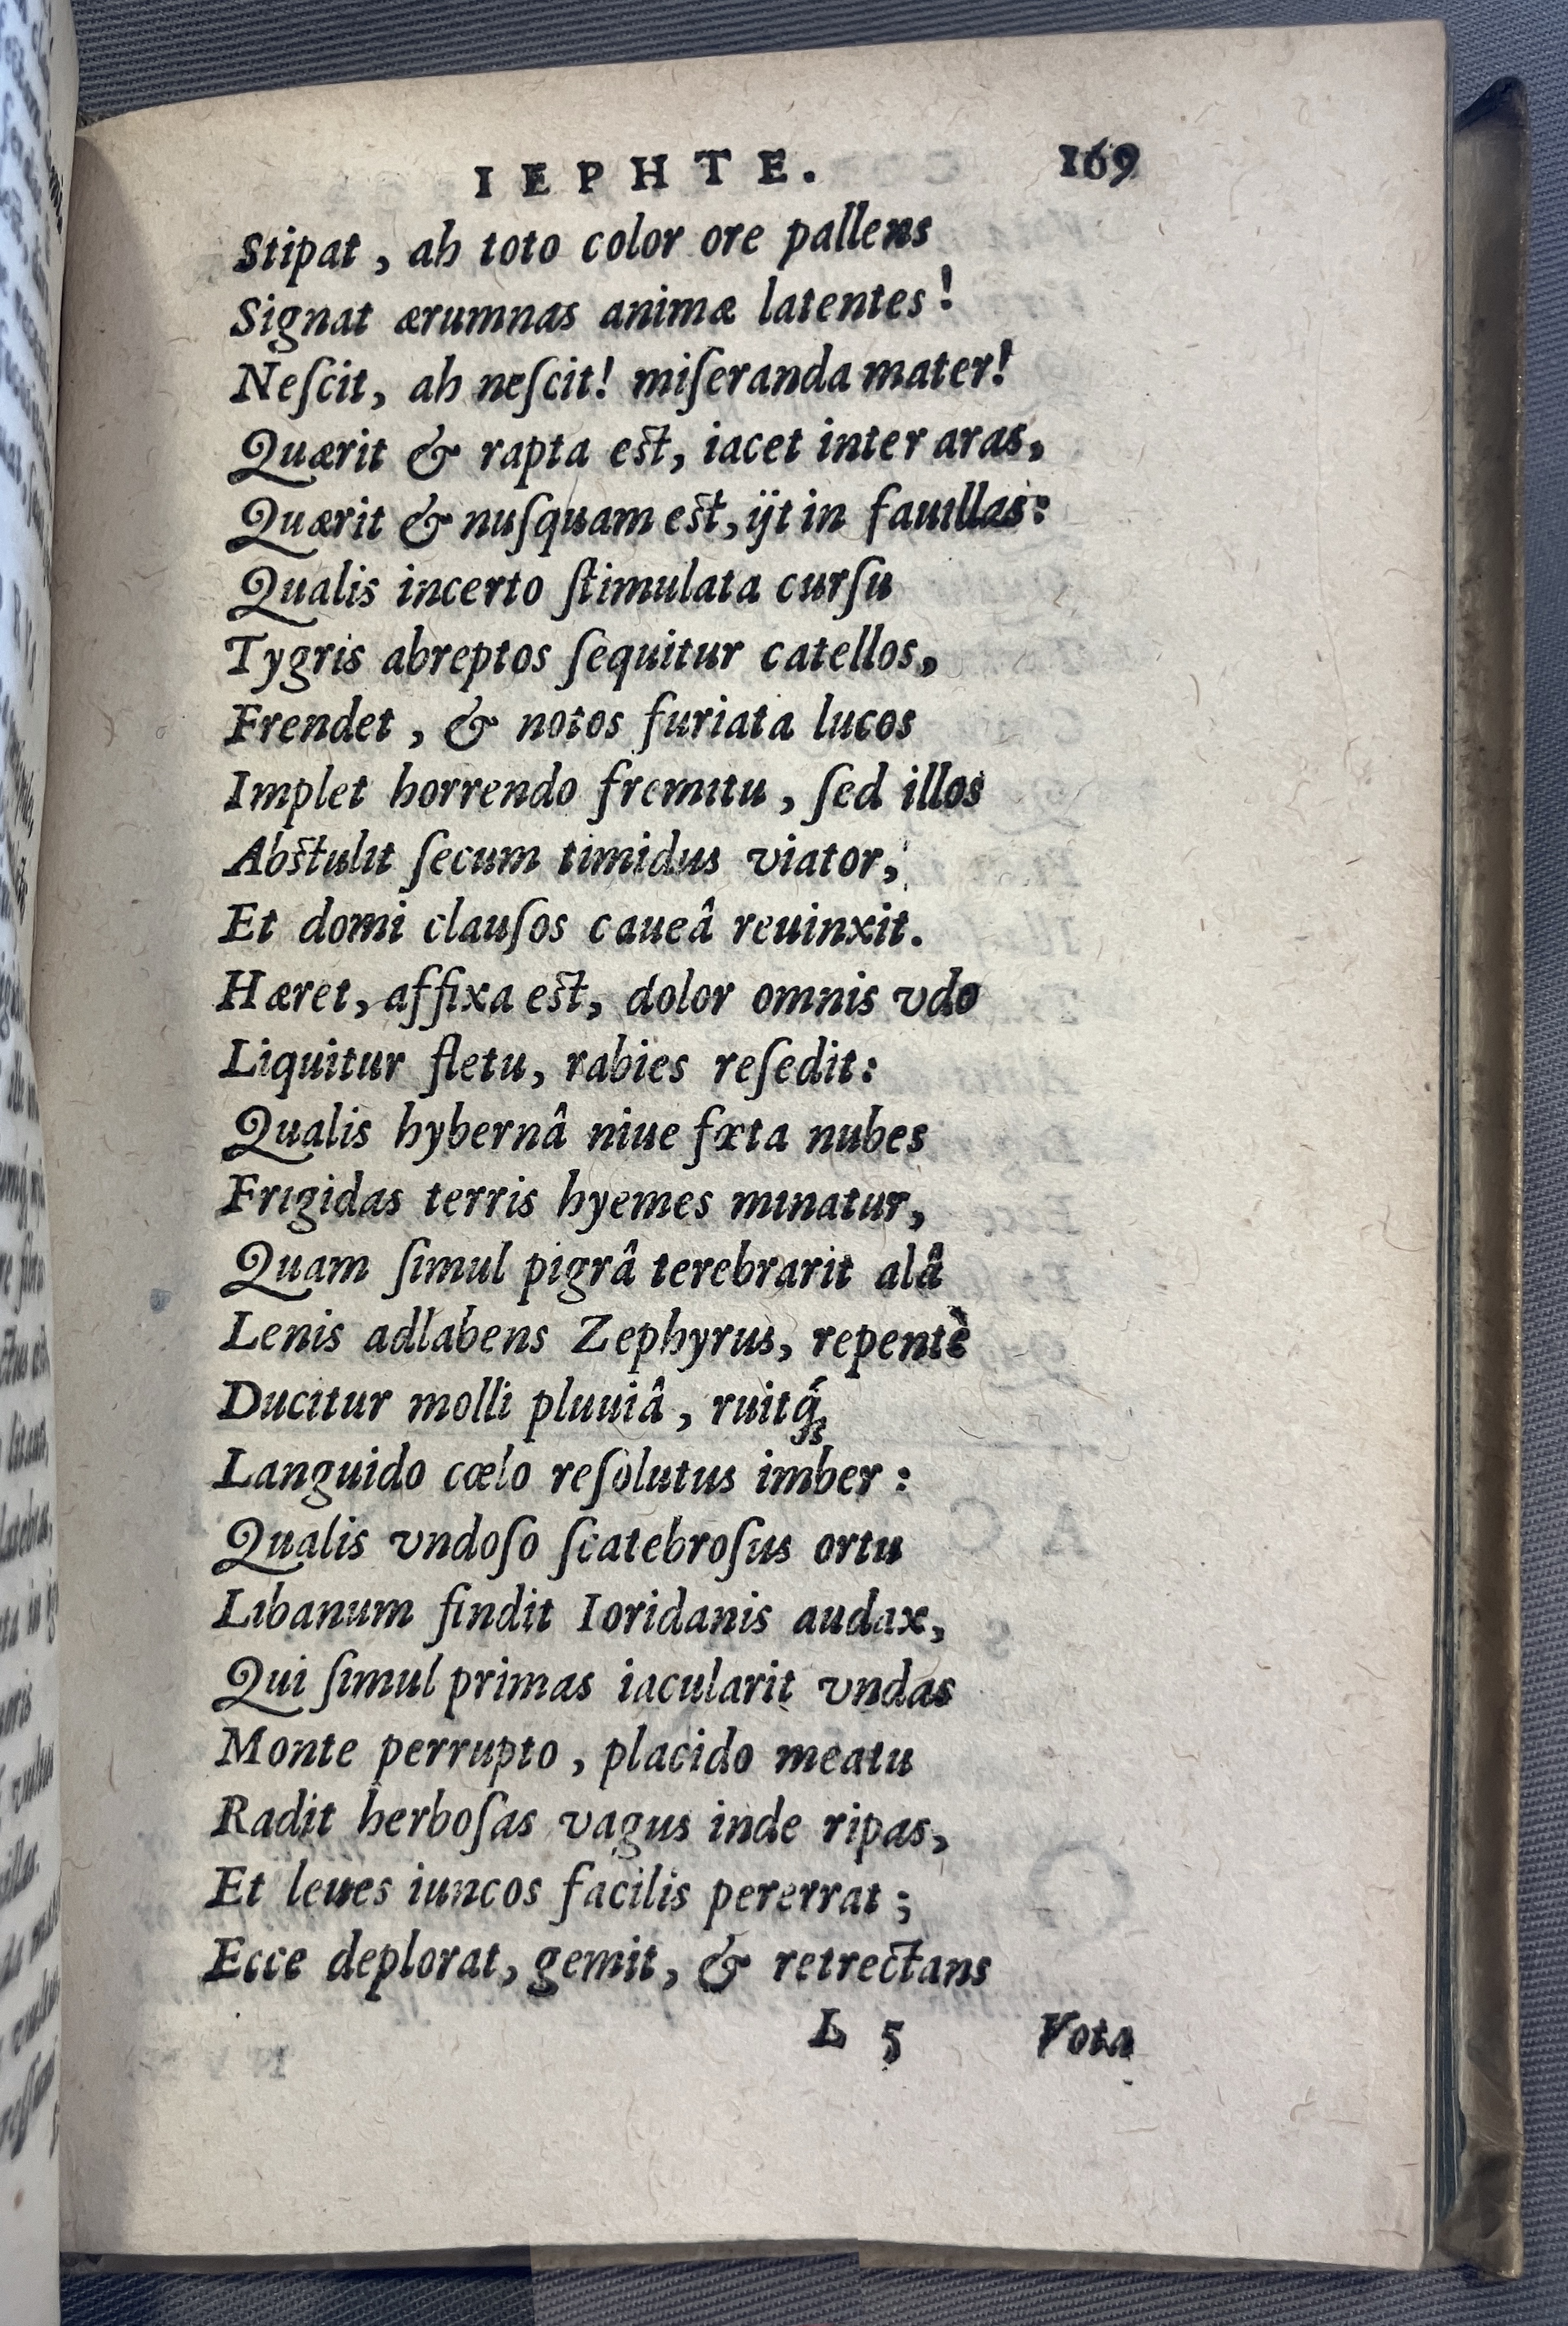 IEPHTE. 169
Stipat, ah toto color ore pallens
Signat ærumnas animæ latentes!
Neſcit, ah neſcit! miſeranda mater!
Quærit & rapta est, iacet inter aras,
Quærit & nuſquam est, ijt in fauillas:
Qualis incerto ſtimulata curſu
Tygris abreptos ſequitur catellos,
Frendet, & notos furiata lucos
Implet horrendo fremitu, ſed illos
Abstulit ſecum timidus viator,
Et domi clauſos caueâ reuinxit.
Hæret, affixa est, dolor omnis vdo
Liquitur fletu, rabies reſedit:
Qualis hybernâ niue fœta nubes
Frigidas terris hyemes minatur,
Quam ſimul pigrâ terebrarit alâ
Lenis adlabens Zephyrus, repentè
Ducitur molli pluuiâ, ruitq́;
Languido cœlo reſolutus imber:
Qualis vndoſo ſcatebroſus ortu
Libanum findit Ioridanis audax,
Qui ſimul primas iacularit vndas
Monte perrupto, placido meatu
Radit herboſas vagus inde ripas,
Et leues iuncos facilis pererrat;
Ecce deplorat, gemit, & retrectans
L 5 Vota